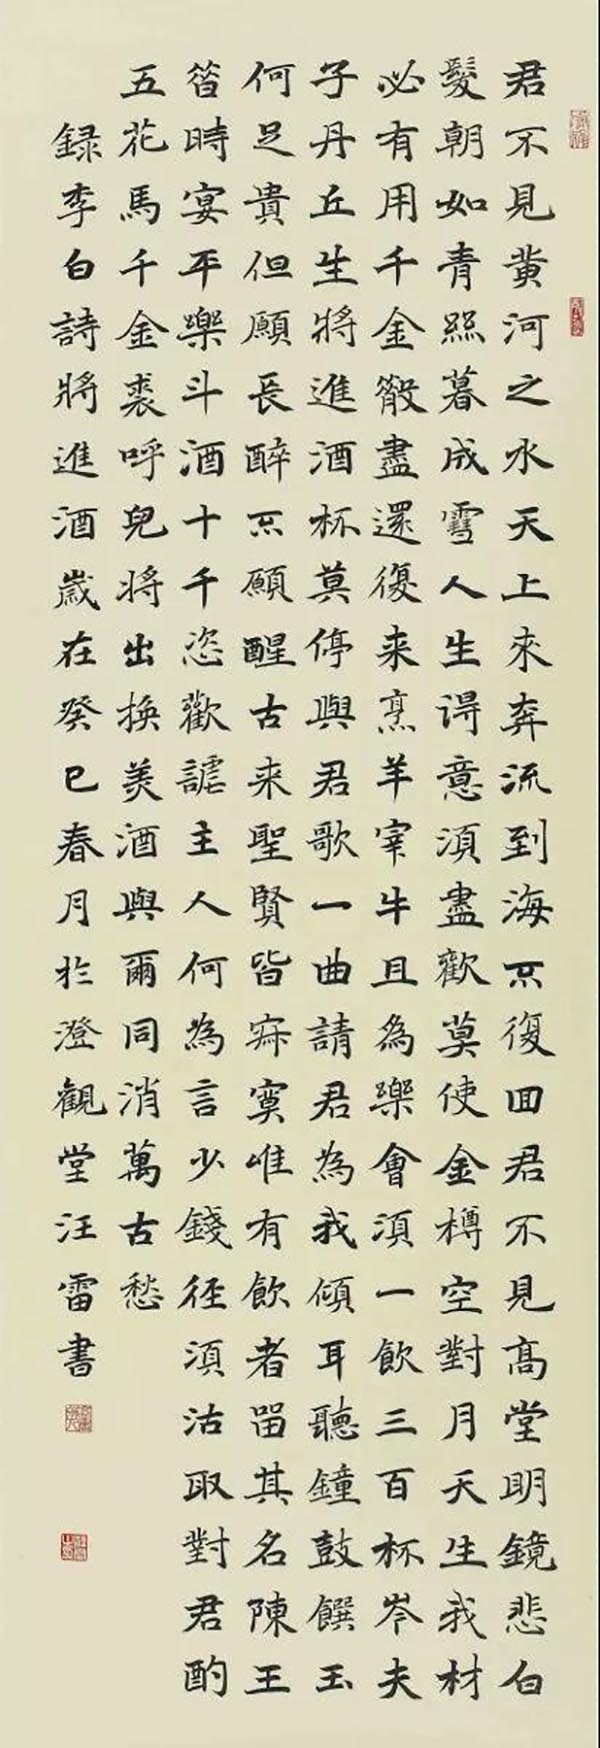 君不見黄河之水天上來奔流到海不復回君不見高堂明鏡悲白
髮朝如青絲暮成雪人生得意須盡歡莫使金樽空對月天生我材
必有用千金散盡還復来烹羊宰牛且為樂會須一飲三百杯岑夫
子丹丘生將進酒杯莫停與君歌一曲請君為我傾耳聽鐘鼓饌玉
何足貴但願長醉不願醒古来聖賢皆寂寞唯有飲者留其名陳王
昔時宴平樂斗酒十千恣歡謔主人何為言少錢径須沽取對君酌
五花馬千金裘呼兒将出換美酒與爾同消萬古愁
録李白詩將進酒歲在癸巳春月於澄觀堂汪雷書